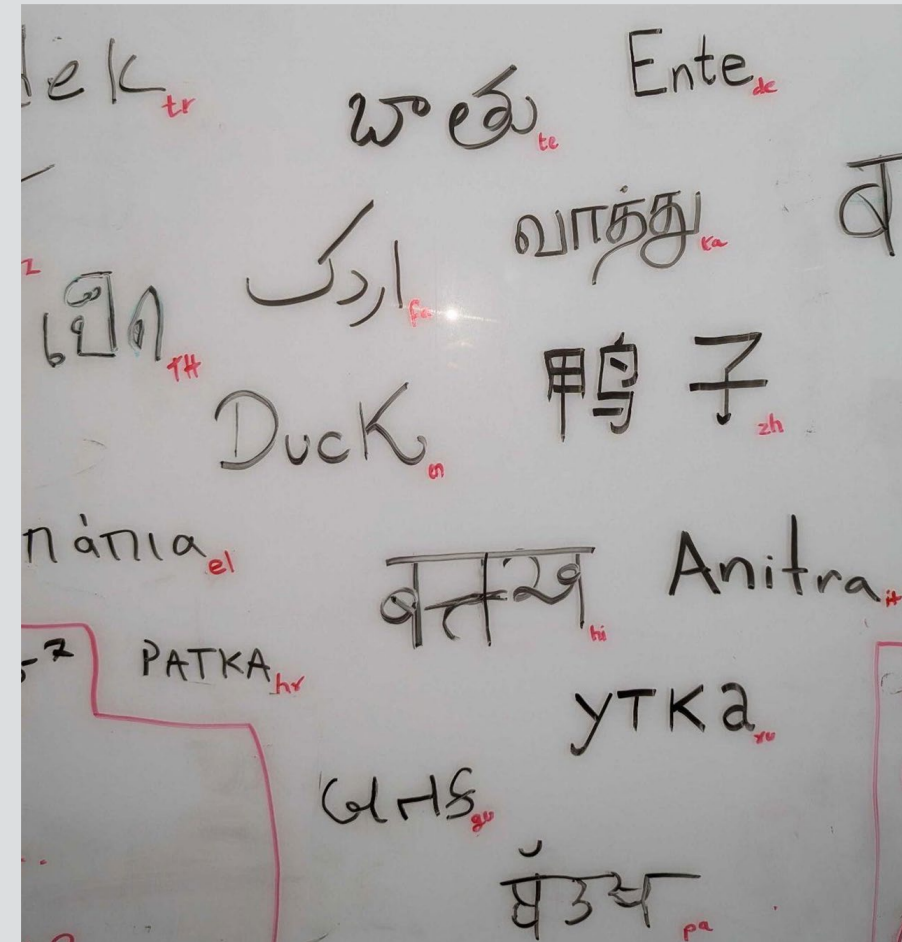 dek tr
బాతు te
Ente de
வாத்து ka
اردک fa
เป็ด TH
鸭子 zh
Duck en
πάπια el
बत्तख hi
Anitra it
PATKA hr
утка ru
બતક gu
pa